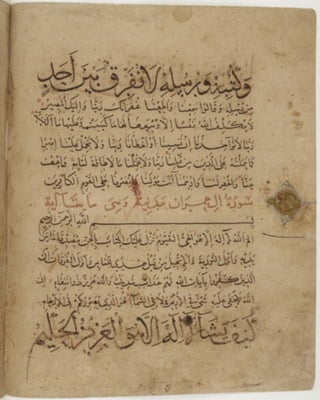 وكتبه ورسله لا نفرق بين أحد
من رسله وقالوا سمعنا وأطعنا غفرانك ربنا وإليك المصير
لا يكلف الله نفسا إلا وسعها لها ما كسبت وعليها ما اكتسبت
ربنا لا تؤاخذنا إن نسينا أو أخطأنا ربنا ولا تحمل علينا إصرا
كما حملته على الذين من قبلنا ربنا ولا تحملنا ما لا طاقة لنا به واعف
عنا واغفر لنا وارحمنا أنت مولانا فانصرنا على القوم الكافرين
سورة آل عمران مدنية وهي مايتا آية
بسم الله الرحمن الرحيم
الم الله لا إله إلا هو الحي القيوم نزل عليك الكتاب بالحق مصدقا لما بين
يديه وأنزل التورية والإنجيل من قبل هدى للناس وأنزل الفرقان إن
الذين كفروا بآيات الله لهم عذاب شديد والله عزيز ذو انتقام إن
الله لا يخفى عليه شيء في الأرض ولا في السماء هو الذي يصوركم في الأرحام
كيف يشاء لا إله إلا هو العزيز الحكيم